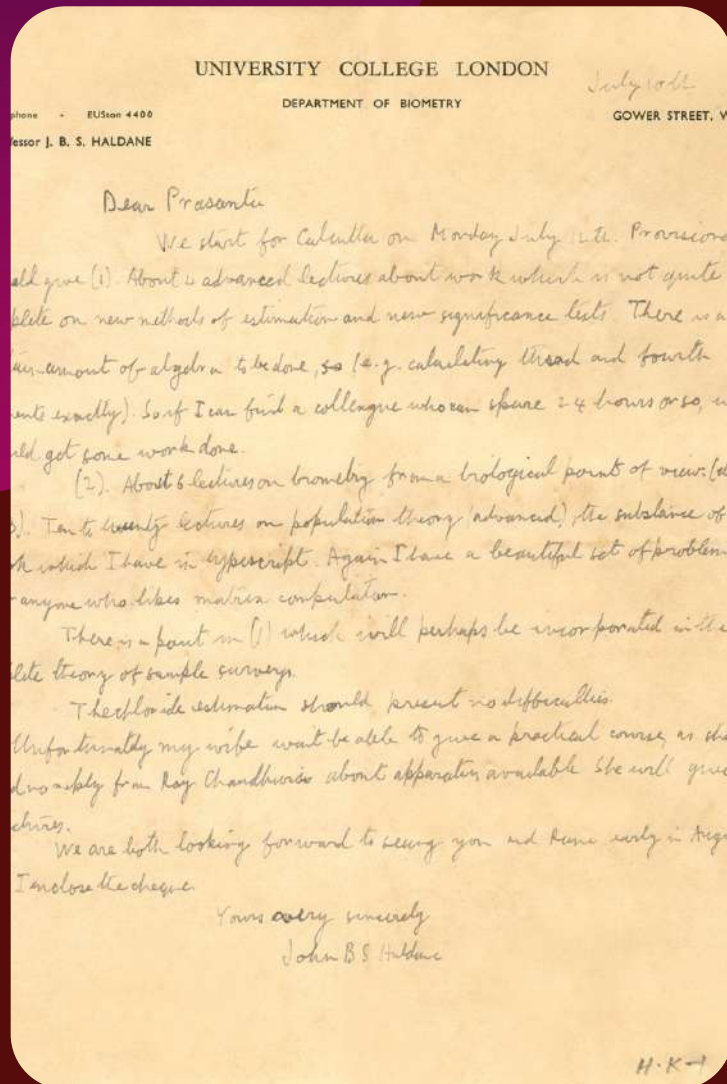 UNIVERSITY COLLEGE LONDON
July 10th
DEPARTMENT OF BIOMETRY
phone - EUSton 4400
GOWER STREET, W
fessor J. B. S. HALDANE
Dear Prasanta
We start for Calcutta on Monday July 12th. Provision
ld give (1). About 4 advanced lectures about work which is not quite
plete on new methods of estimation and new significance tests. There is a
amount of algebra to be done, so (e.g. calculating third and fourth
ents exactly). So if I can find a colleague who can spare 24 hours or so, w
ld get some work done.
(2). About 6 lectures on biometry from a biological point of view. (
). Ten to twenty lectures on population theory (advanced), the substance of
k which I have in typescript. Again I have a beautiful set of problem
anyone who likes matrix computation.
There is a point in (1) which will perhaps be incorporated in the
lete theory of sample surveys.
The chloride estimation should present no difficulties.
Unfortunately my wife won't be able to give a practical course, as sh
d no reply from Ray about apparatus available. She will give
ctures.
We are both looking forward to seeing you and early in Aug
I enclose the cheque.
Yours very sincerely
John B S Haldane
H.K-1